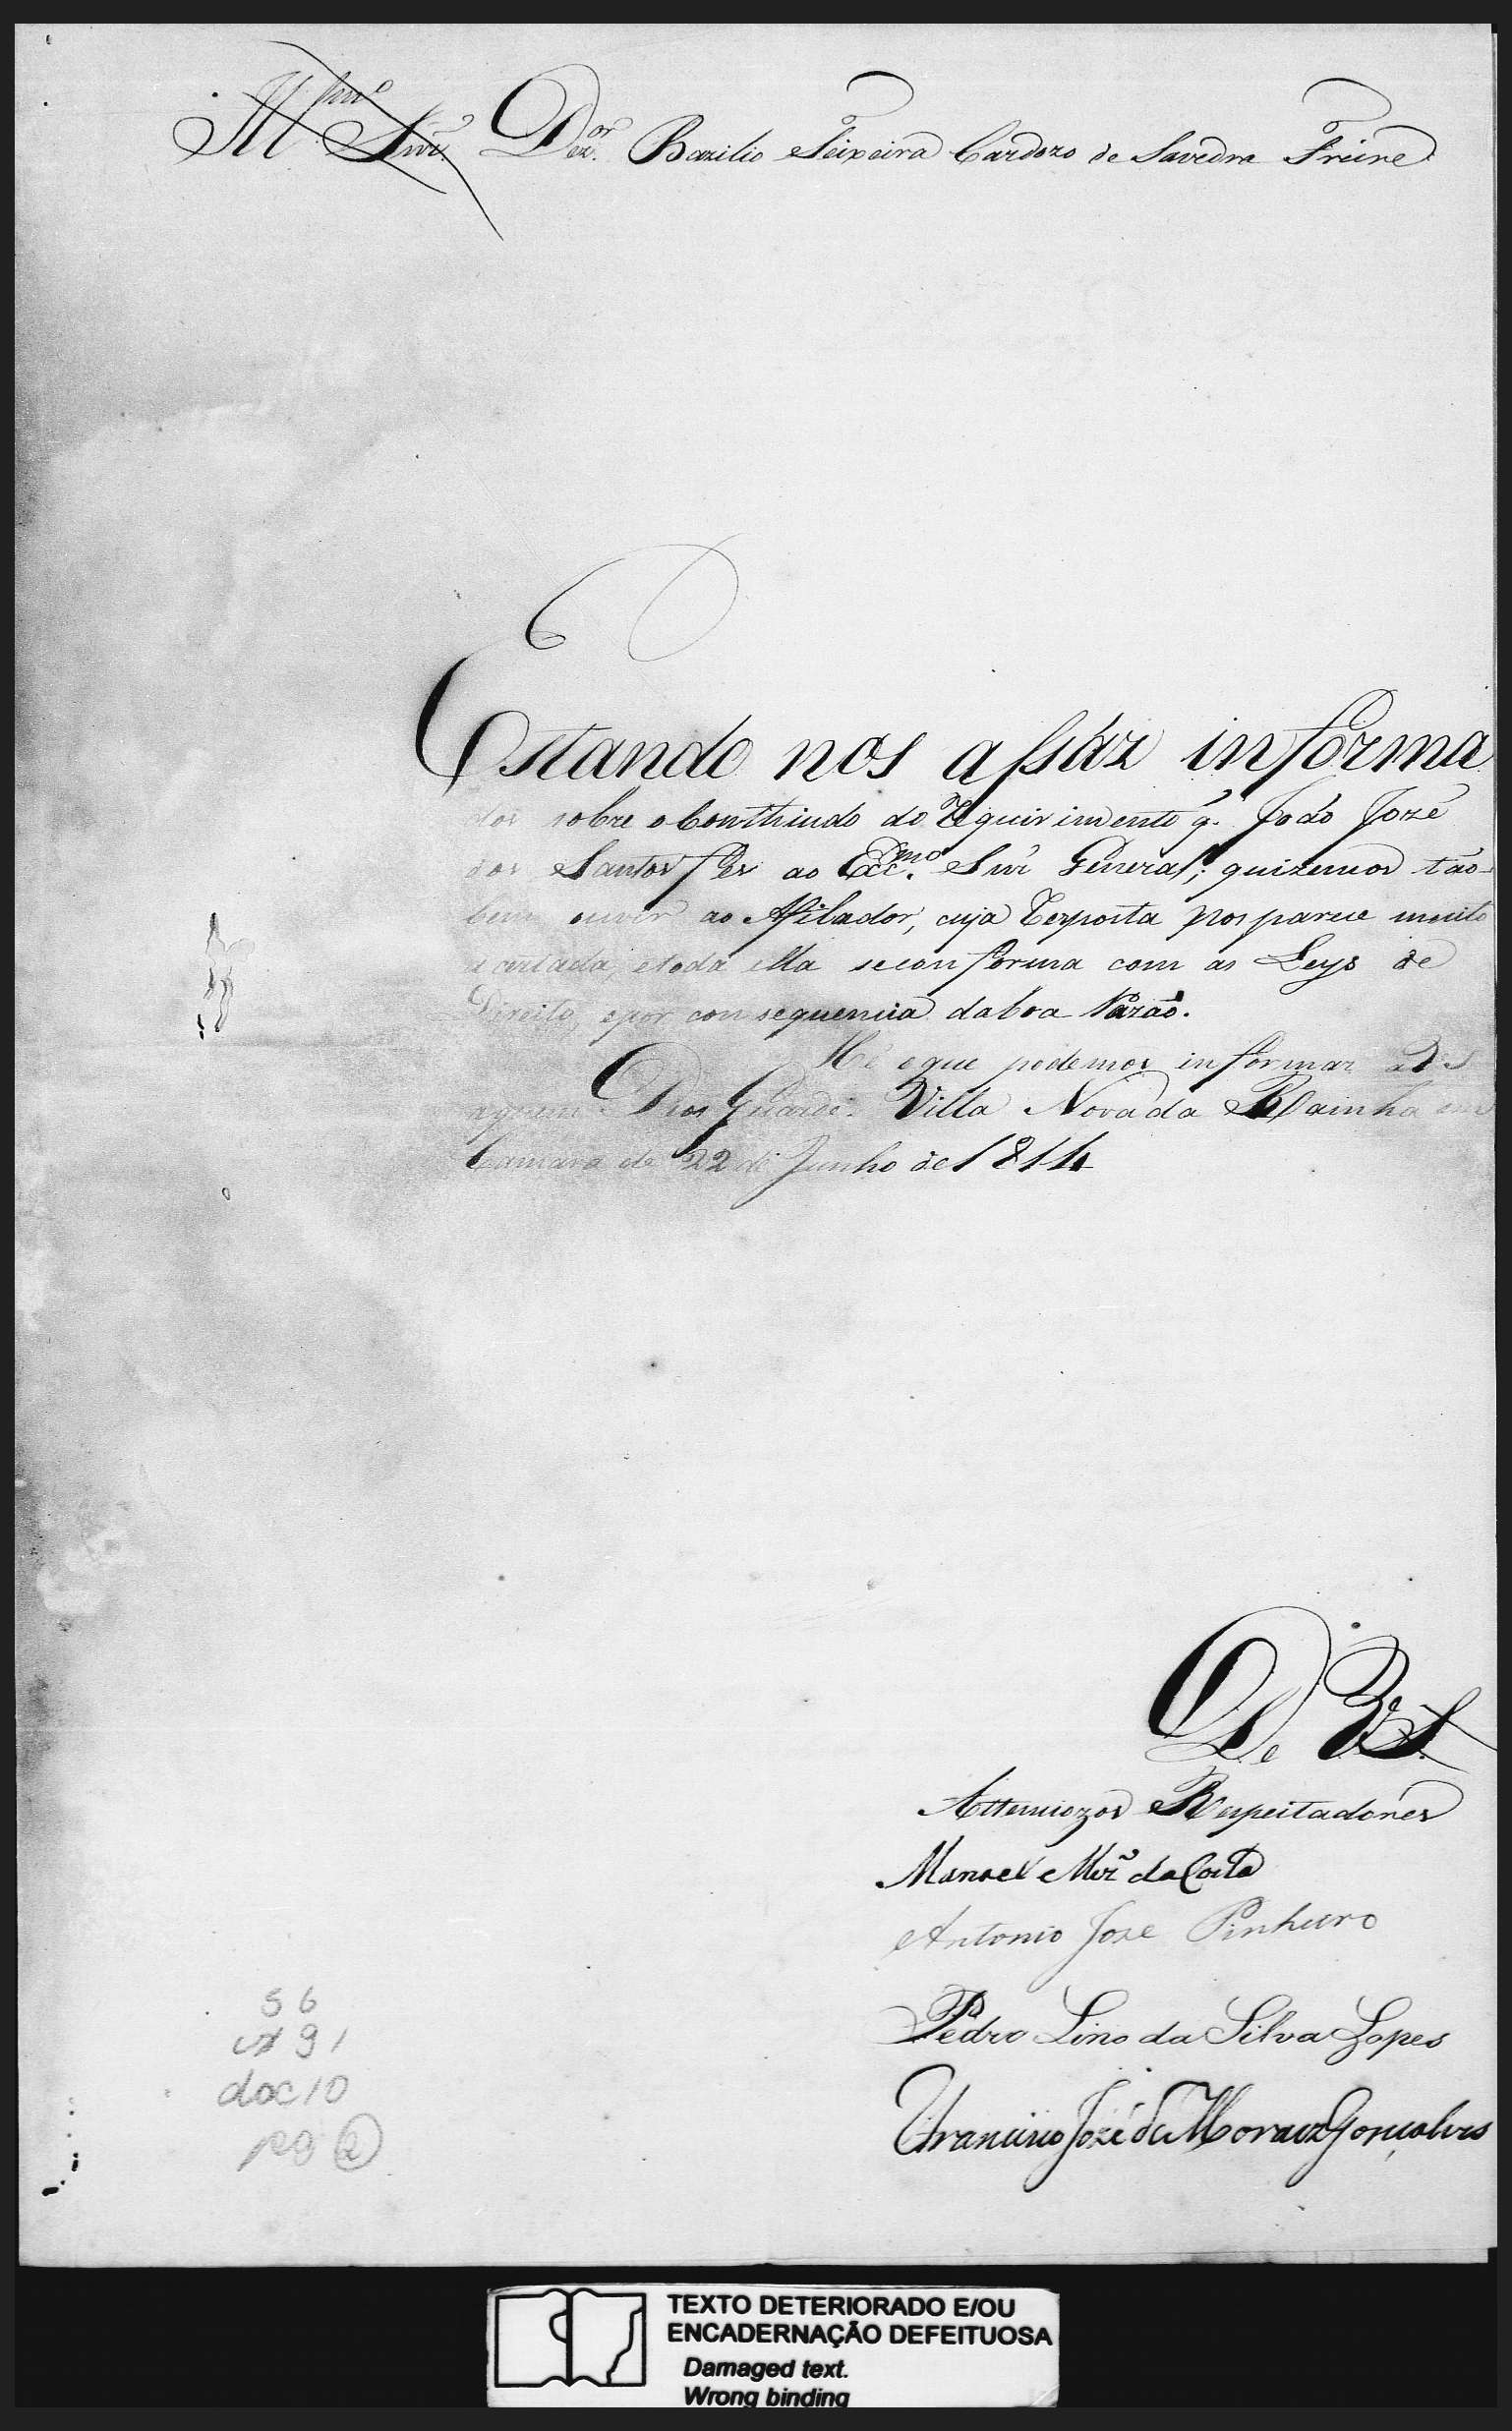 Illmo Snr. Dezor. Bazilio Teixeira Cardozo de Savedra Freire
Estando nos assáz informa
dos sobre o Conthiudo do Requirimento q. João Jozé
dos Santos fes ao Exc.mo Snr General; quizemos tão-
bem ouvir ao Afilador, cuja Resposta nos parece muito
acertada, e toda ella se conforma com as Leys de
Direito, epor consequencia da boa Razaõ.
He oque podemos informar a V S
aquem Deos Guarde. Villa Nova da Rainha em
Camara de 22 de Junho de 1814
De V. S.
Attenciozos Respeitadores
Manoel Miz da Costa
Antonio Jose Pinheiro
Pedro Lino da Silva Lopes
Francisco Jozé de Moraez Gonçalves
56
cx 91
doc 10
pg 2
TEXTO DETERIORADO E/OU
ENCADERNAÇÃO DEFEITUOSA
Damaged text.
Wrong binding